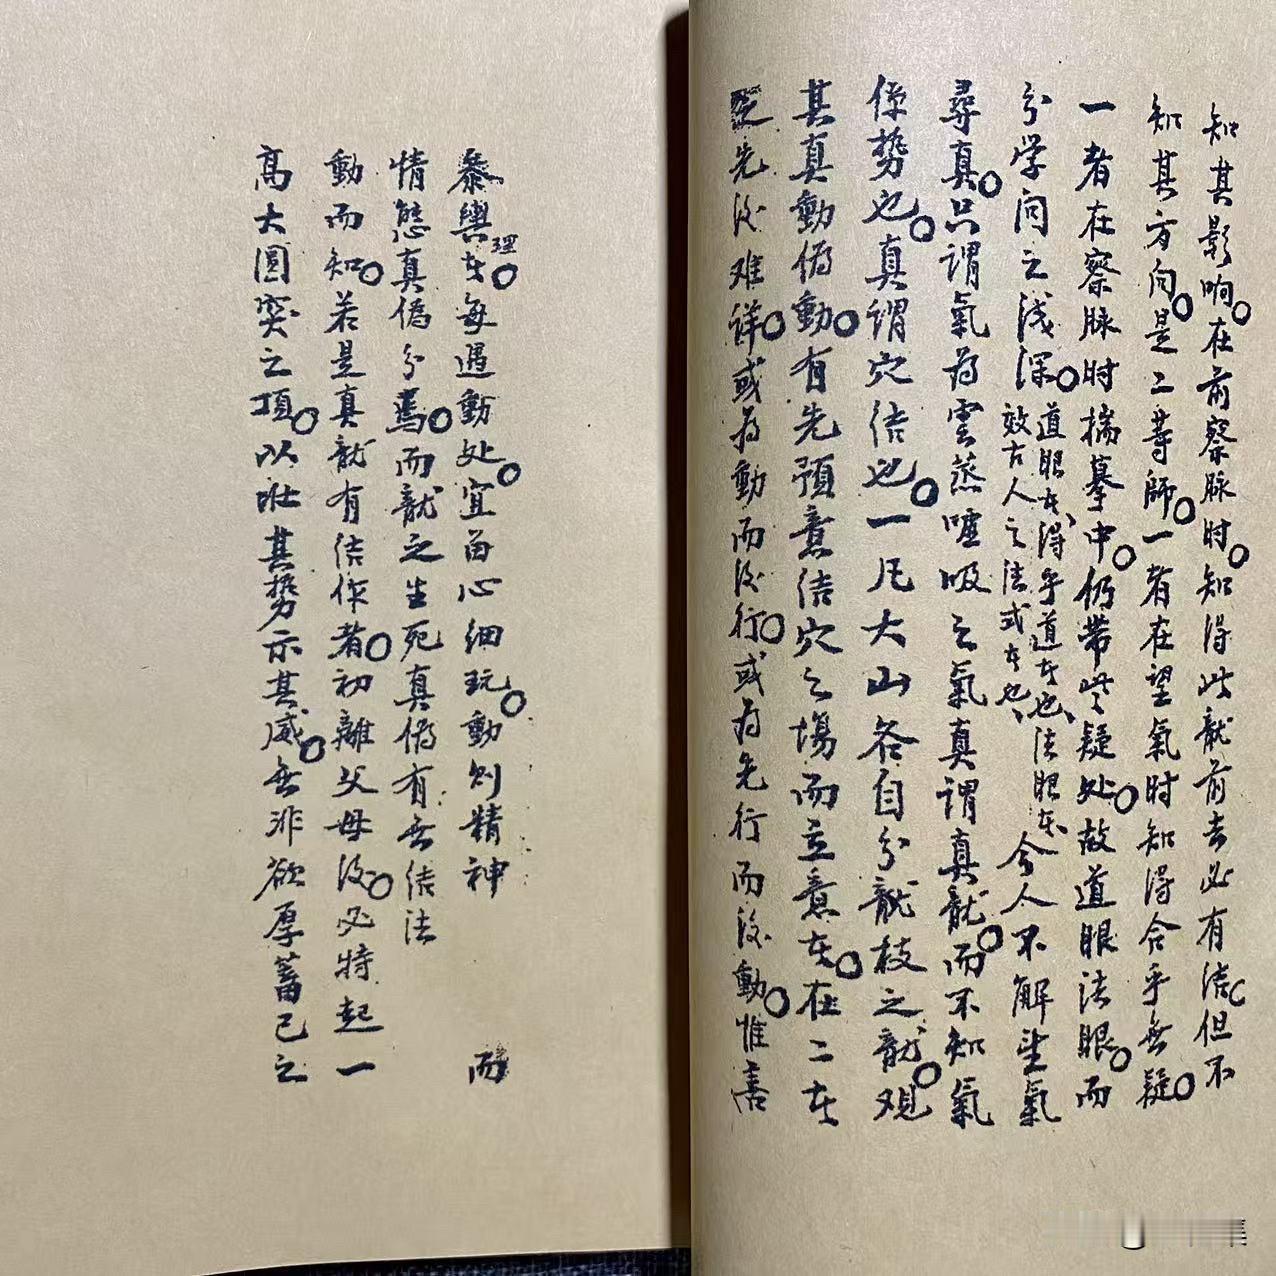 知其影响。在前察脉时。知得此龍前去必有结。但不
知其方向。是二等師。一者在望氣时知得合乎無疑。
一者在察脉时揣摹中。仍带些疑处。故道眼法眼。而
分学问之浅深。道眼者、得乎道者也、法眼者、效古人之法式者也、今人不解望氣
尋真。只謂氣為雲蒸噓吸之氣真謂真龍。而不知氣
係势也。真謂穴结也。一凡大山各自分龍枝之龍。观
其真動偽動。有先預意结穴之場而立意者。在二者
之先後难详。或為動而後行。或為先行而後動。惟善
泰輿者理。每遇動处。宜留心细玩。動则精神
情態真偽分焉。而龍之生死真偽有無结法 而
動而知。若是真龍有结作者。初離父母後。必特起一
高大圓突之頂。以壯其勢示其威。無非欲厚蓄己之